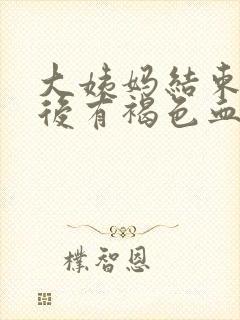 大姨妈结束
后有褐色血
朴智恩